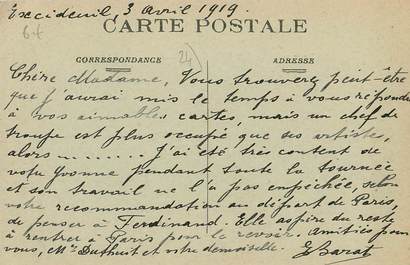 Excideuil, 3 avril 1919.
64
CARTE POSTALE
24
CORRESPONDANCE
ADRESSE
Chère Madame, Vous trouverez peut-être
que j'aurai mis le temps à vous répondre
à vos aimables cartes, mais un chef de
troupe est plus occupé que ses artistes,
alors ........ J'ai été très content de
votre Yvonne pendant toute la tournée
et son travail ne l'a pas empêchée, selon
votre recommandation au départ de Paris,
de penser à Ferdinand. Elle aspire du reste
à rentrer à Paris pour le revoir. Amitiés pour
vous, Mr Duthuit et votre demoiselle. Barat